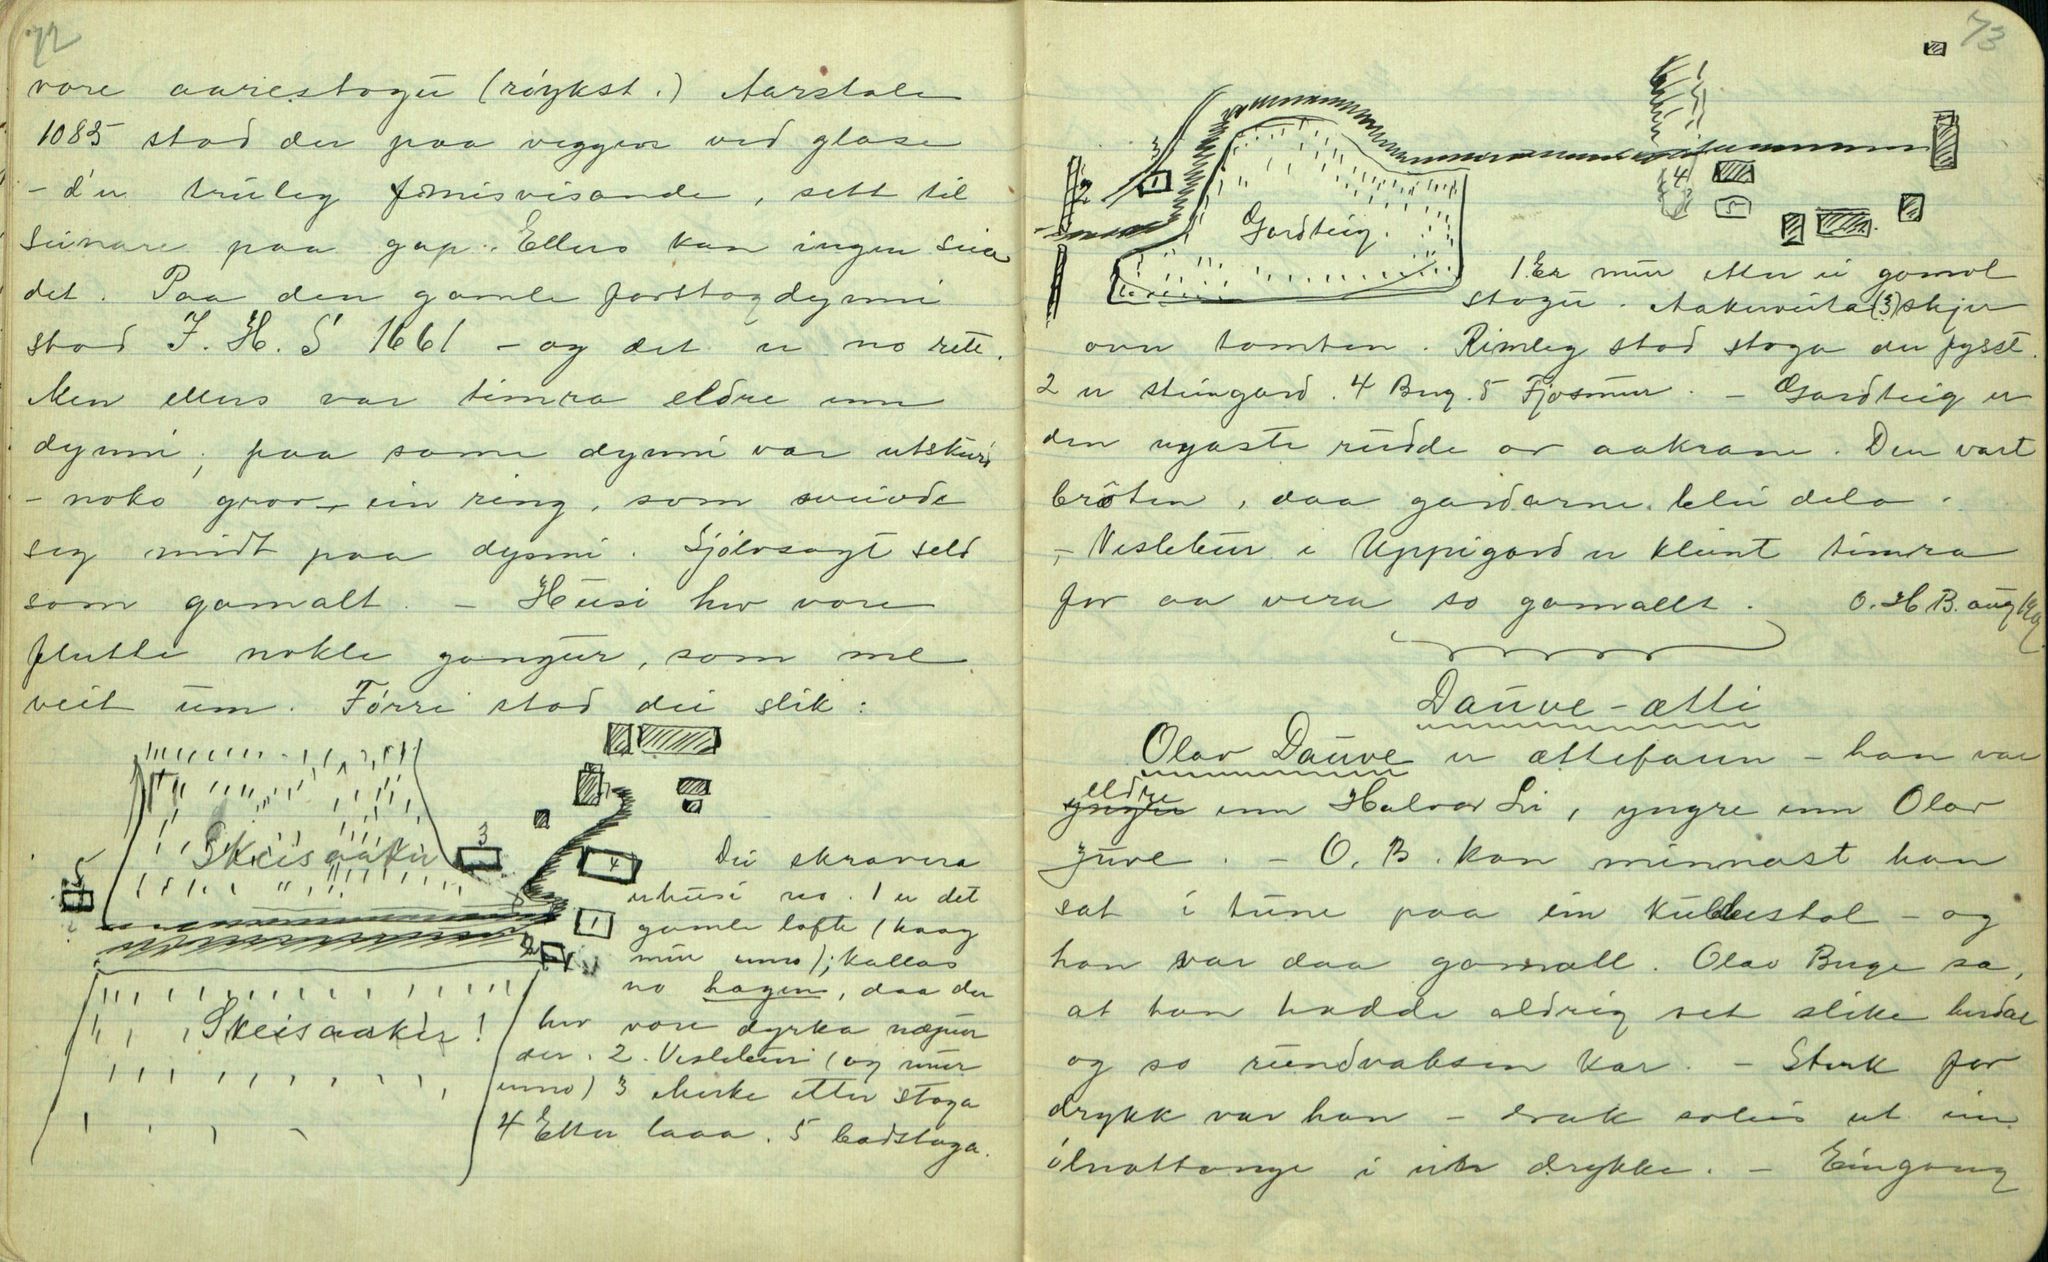 72
vore aarestogu (røykst.) Aarstale
1085 stod der paa veggen ved glase
- d'er truleg misvisande, sett til
seinare paa gap. Ellers kan ingen seia
det. Paa den gamle forstogdynni
stod J. H. S 1661 - og det er no rett.
Men ellers var timra eldre enn
dynni; paa same dynni var utskuri
- noko grov - ein ring, som sveivde
seg midt paa dynni. Sjølvsagt seld
som gamalt. - Husi hev vore
flutte nokle gongur, som me
veit um. Førr stod dei slik:
3
Skeisaaker
4
5
1
2
Skeisaaker!
Dei skravera
er husi no. 1 er det
gamle lofte (haag
mur enno); kallas
no hagen, daa der
hev vore dyrka næpur
der. 2. Veslebur (og mur
enno) 3 Merke etter stoga
4 Etter laaa. 5 badstoga.
73
3
2
1
Gardteig.
4
5
1 Er mur etter ei gamol
stogu. Aakerveita (3) skjer
over tomten. Rimleg stod stoga der fysst.
2 er steingard. 4 Brug. 5 Fjosmur. - Gardteig er
den nyaste rudde av aakrane. Den vart
broten, daa gardarne blei dela.
- Veslebur i Uppigard er kleint timra
for aa vera so gamallt. O. H. B. aug 1919
Dauve-ætti
Olav Dauve er ættefaren - han var
eldre
yngre enn Halvor Li, yngre enn Olav
Juve. - O. B. kan minnast han
sat i tune paa ein kubbestol - og
han var daa gamall. Olav Bruge sa,
at han hadde aldrig set slike herdar
og so rundvaksen kar. - Sterk for
drykk var han - drak soleis ut ein
ølnattange i ein drykke. - Eingong